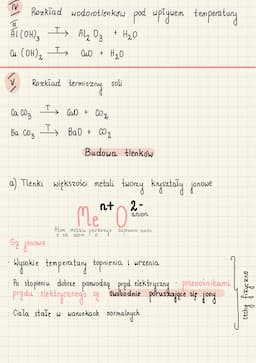 IV Rozkład wodorotlenków pod wpływem temperatury
III
Al(OH)₃ —T→ Al₂O₃ + H₂O
Cu(OH)₂ —T→ CuO + H₂O
V Rozkład termiczny soli
CaCO₃ —T→ CaO + CO₂
BaCO₃ —T→ BaO + CO₂
Budowa tlenków
a) Tlenki większości metali tworzą kryształy jonowe
Me n+ O 2-
anion
Są jonowe
· Wysokie temperatury topnienia i wrzenia
· Po stopieniu dobrze przewodzą prąd elektryczny - przenośnikami
prądu elektrycznego są swobodnie poruszające się jony
· Ciała stałe w warunkach normalnych
cechy fizyczne